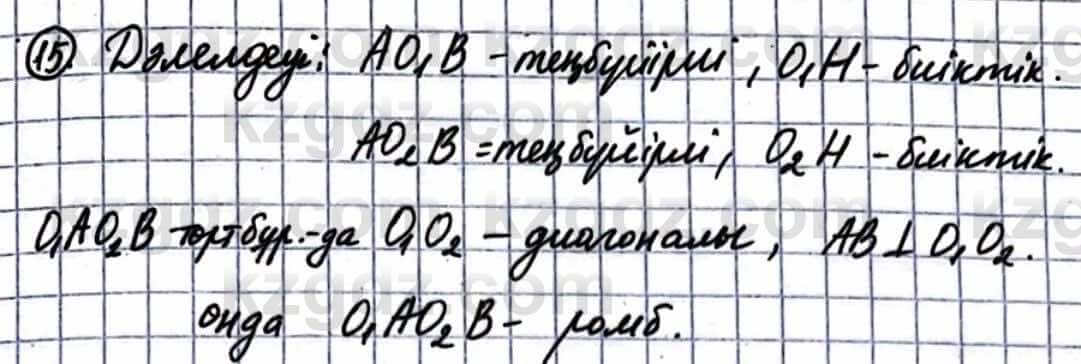 15. Дәлелдеуі: AO₁B - теңбүйірлі, O₁H - биіктік.
AO₂B = теңбүйірлі, O₂H - биіктік.
O₁AO₂B төртбұр.-да O₁O₂ - диагоналы, AB ⊥ O₁O₂.
онда O₁AO₂B - ромб.